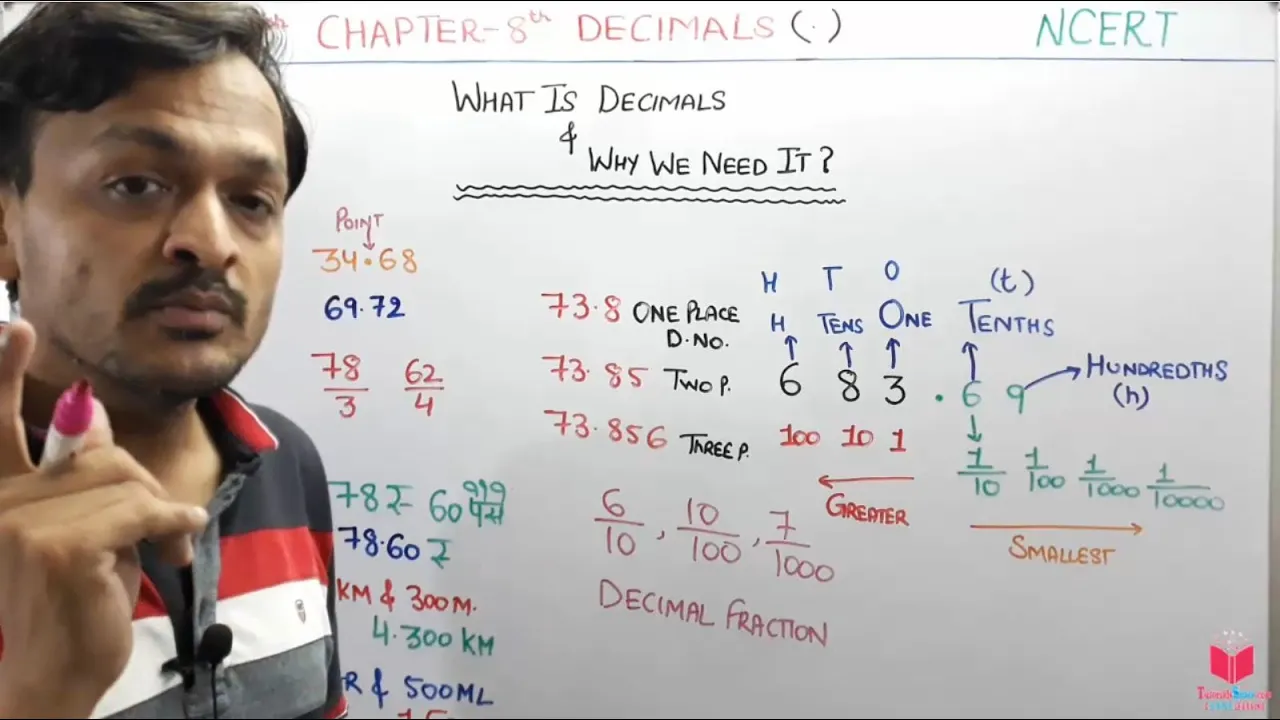 CHAPTER-8th DECIMALS (.) NCERT
WHAT IS DECIMALS
&
WHY WE NEED IT?
POINT
34.68
69.72
78/3 62/4
78₹ 60 पैसे
78.60₹
KM & 300M.
4.300 KM
R & 500ML
73.8 ONE PLACE
D.NO.
73.85 TWO P.
73.856 THREE P.
H T O (t)
H TENS ONE TENTHS
HUNDREDTHS
(h)
6 8 3 . 6 9
100 10 1 1/10 1/100 1/1000 1/10000
GREATER
SMALLEST
6/10, 10/100, 7/1000
DECIMAL FRACTION